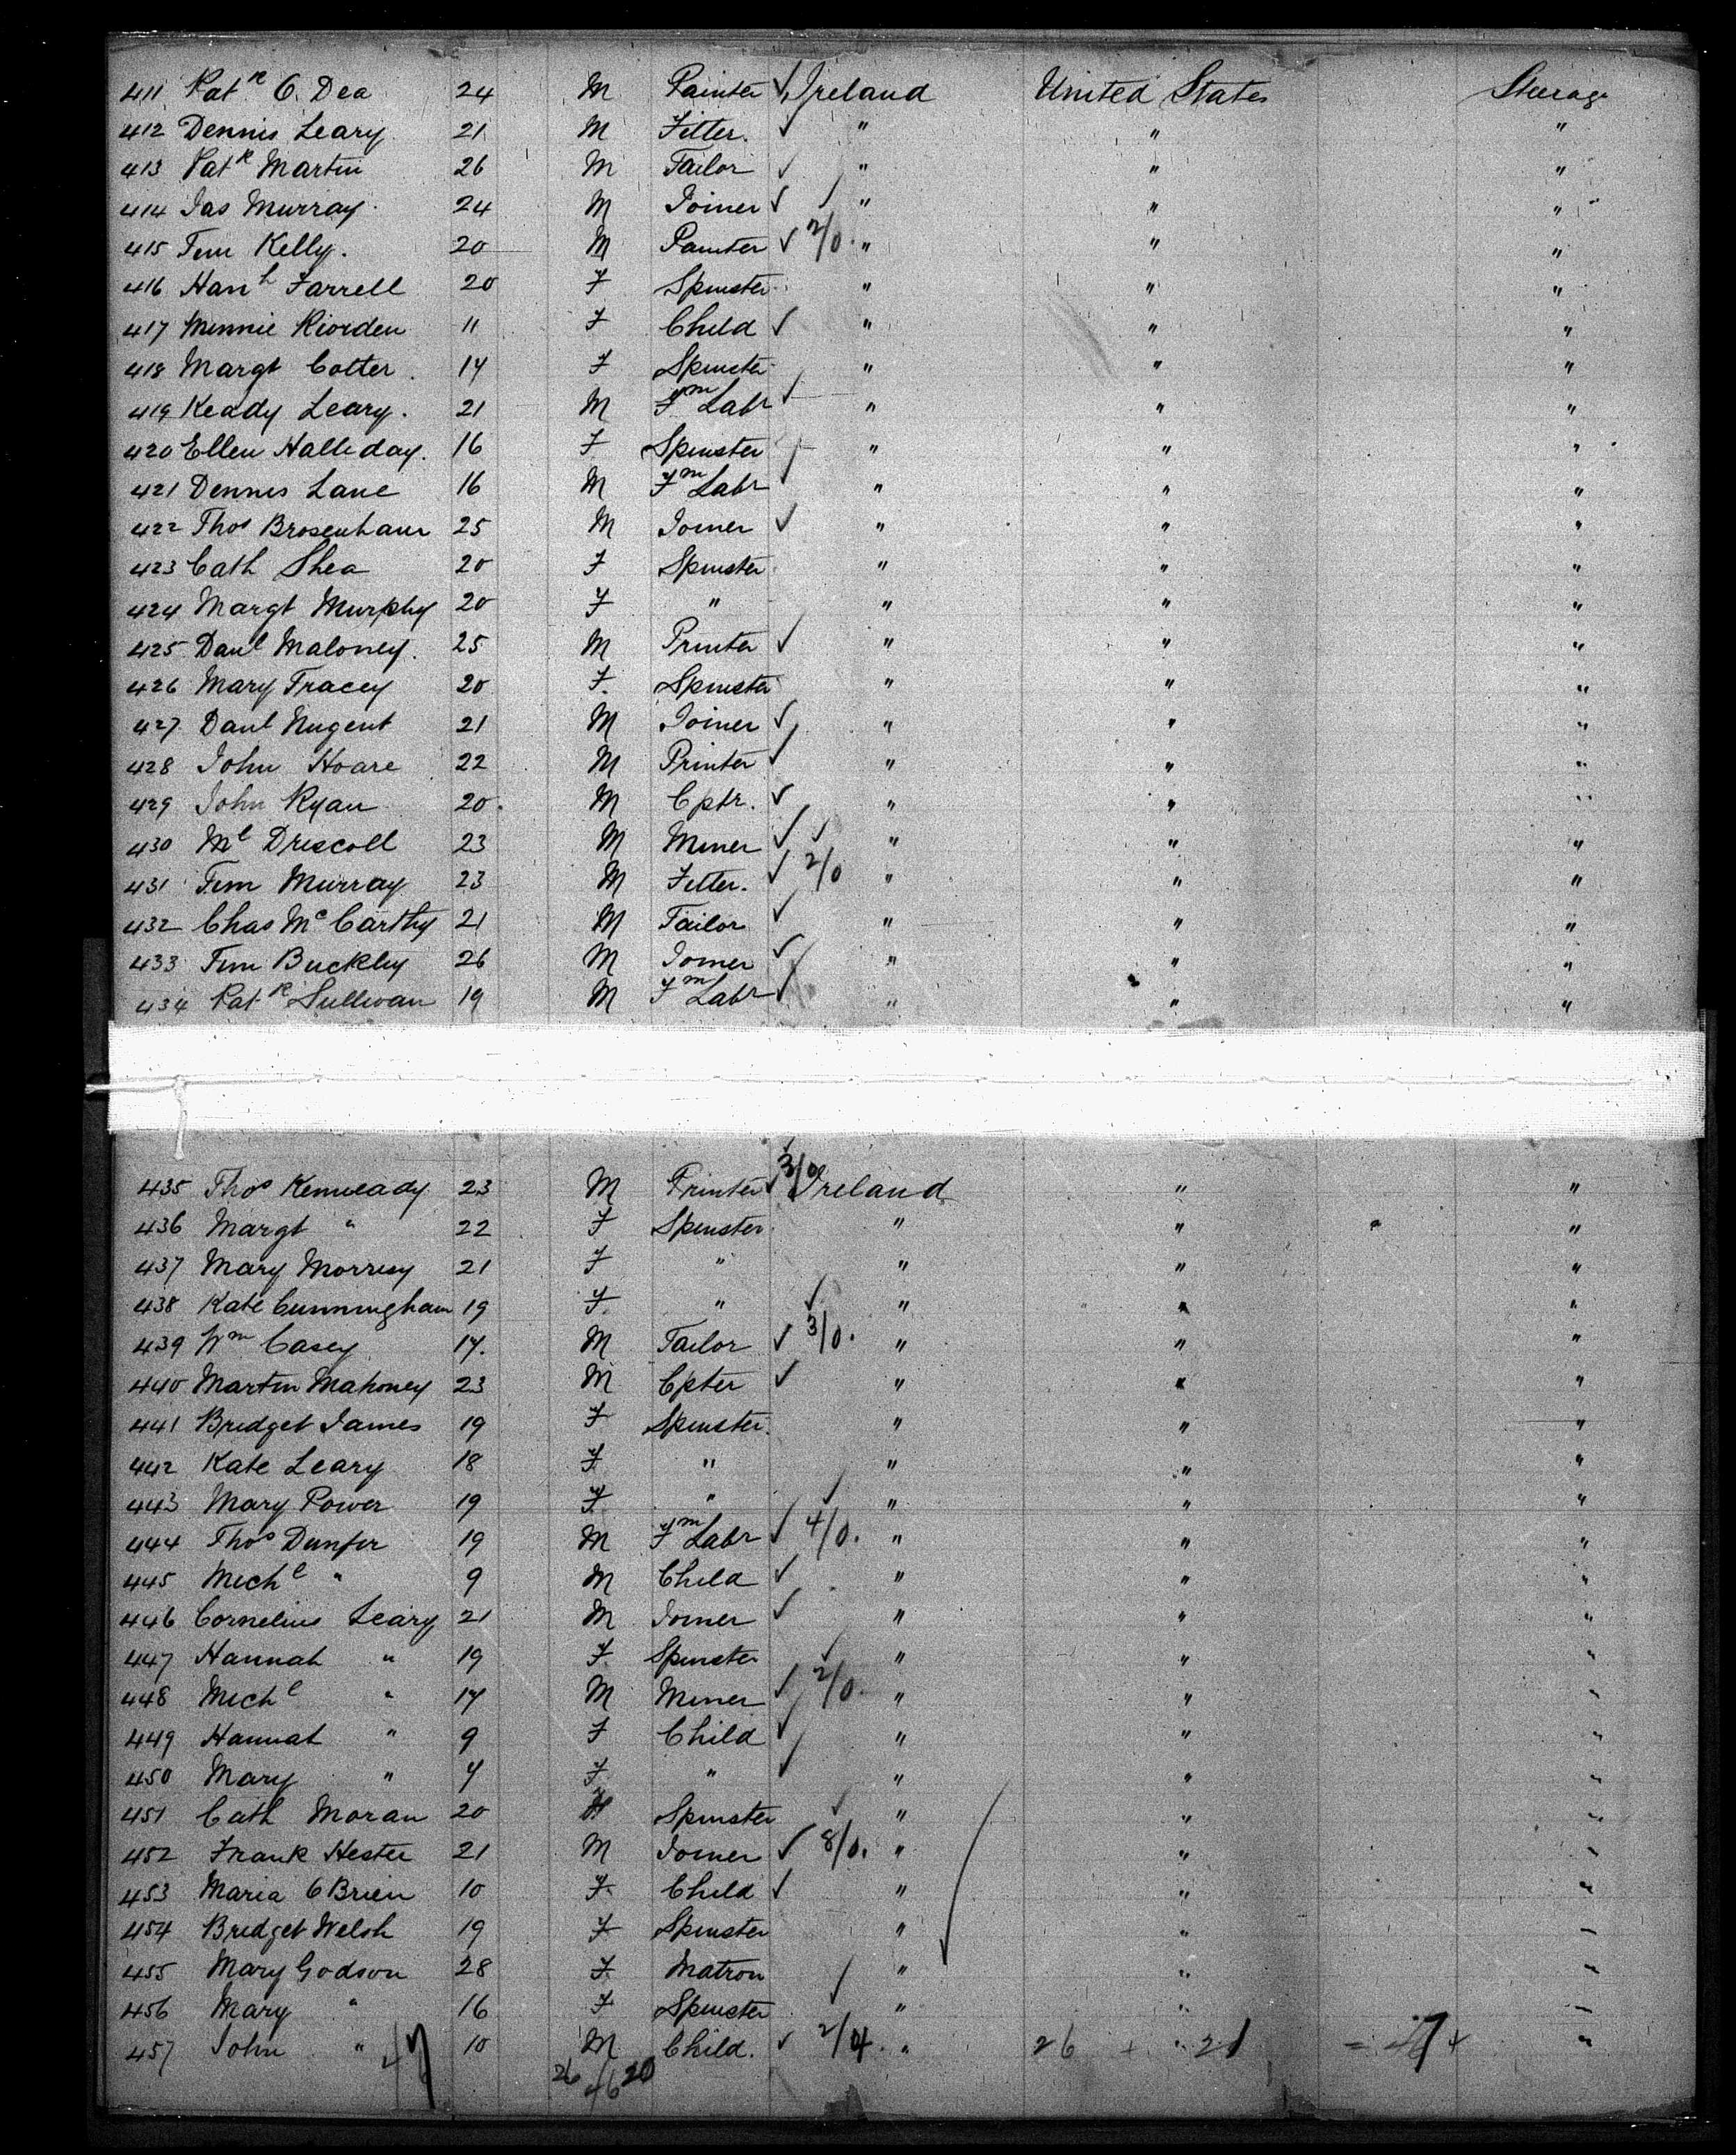 411 Patk O. Dea 24 M Painter ✓ Ireland United States Steerage
412 Dennis Leary 21 M Fitter. ✓ " " "
413 Patk Martin 26 M Tailor ✓ " " "
414 Jas Murray 24 M Joiner ✓ ✓ " " "
415 Tim Kelly. 20 M Painter ✓ 2/0. " " "
416 Hanh Farrell 20 F Spinster " " "
417 Minnie Riorden 11 F Child ✓ " " "
418 Margt Cotter 14 F Spinster " " "
419 Keady Leary. 21 M Fm Labr ✓ " " "
420 Ellen Halliday. 16 F Spinster " " "
421 Dennis Lane 16 M Fm Labr ✓ " " "
422 Thos Brosenham 25 M Joiner ✓ " " "
423 Cath Shea 20 F Spinster " " "
424 Margt Murphy 20 F " " " "
425 Danl Maloney. 25 M Printer ✓ " " "
426 Mary Tracey 20 F. Spinster " " "
427 Danl Nugent 21 M Joiner ✓ " " "
428 John Hoare 22 M Printer ✓ " " "
429 John Ryan 20. M Cptr. ✓ " " "
430 Ml Driscoll 23 M Miner ✓ ✓ " " "
431 Tim Murray 23 M Fitter. ✓ 2/0 " " "
432 Chas McCarthy 21 M Tailor ✓ " " "
433 Tim Buckley 26 M Joiner ✓ " " "
434 Patk Sullivan 19 M Fm Labr ✓ " " "
3/0
435 Thos Kenneady 23 M Printer ✓ Ireland " "
436 Margt " 22 F Spinster " " "
437 Mary Morrisy 21 F " " " "
438 Kate Cunningham 19 F. " ✓ " " "
439 Wm Casey 17. M Tailor ✓ 3/0. " " "
440 Martin Mahoney 23 M Cpter ✓ " " "
441 Bridget James 19 F Spinster. " " "
442 Kate Leary 18 F. " " " "
443 Mary Power 19 F. " ✓ " " "
444 Thos Dunfer 19 M Fm Labr ✓ 4/0. " " "
445 Michl " 9 M Child ✓ " " "
446 Cornelius Leary 21 M Joiner ✓ " " "
447 Hannah " 19 F. Spinster ✓ " " "
448 Michl " 17 M Miner ✓ 2/0. " " "
449 Hannah " 9 F Child ✓ " " "
450 Mary " 7 F. " ✓ " " "
451 Cath Moran 20 F Spinster ✓ " " "
452 Frank Hester 21 M Joiner ✓ 8/0. " " "
453 Maria O Brien 10 F. Child ✓ " " "
454 Bridget Welsh 19 F Spinster " " "
455 Mary Godson 28 F. Matron " " "
456 Mary " 16 F Spinster ✓ " " "
457 John " 10 M Child. ✓ 2/4. " 26 + 21 = 47 "
47 26 20
46